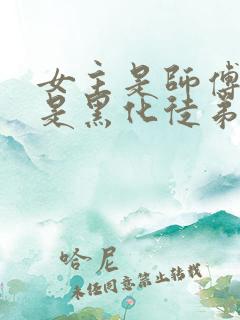 女主是師傅
是黑化徒弟
哈尼
未經同意禁止轉載